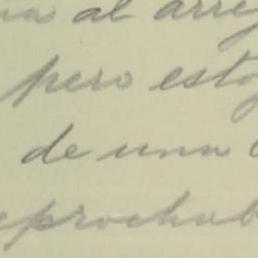 al arre
pero esto
de una
eprochab